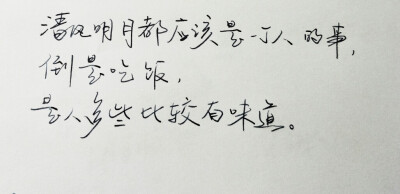 清风明月都应该是一个人的事，
倒是吃饭，
是人多些比较有味道。